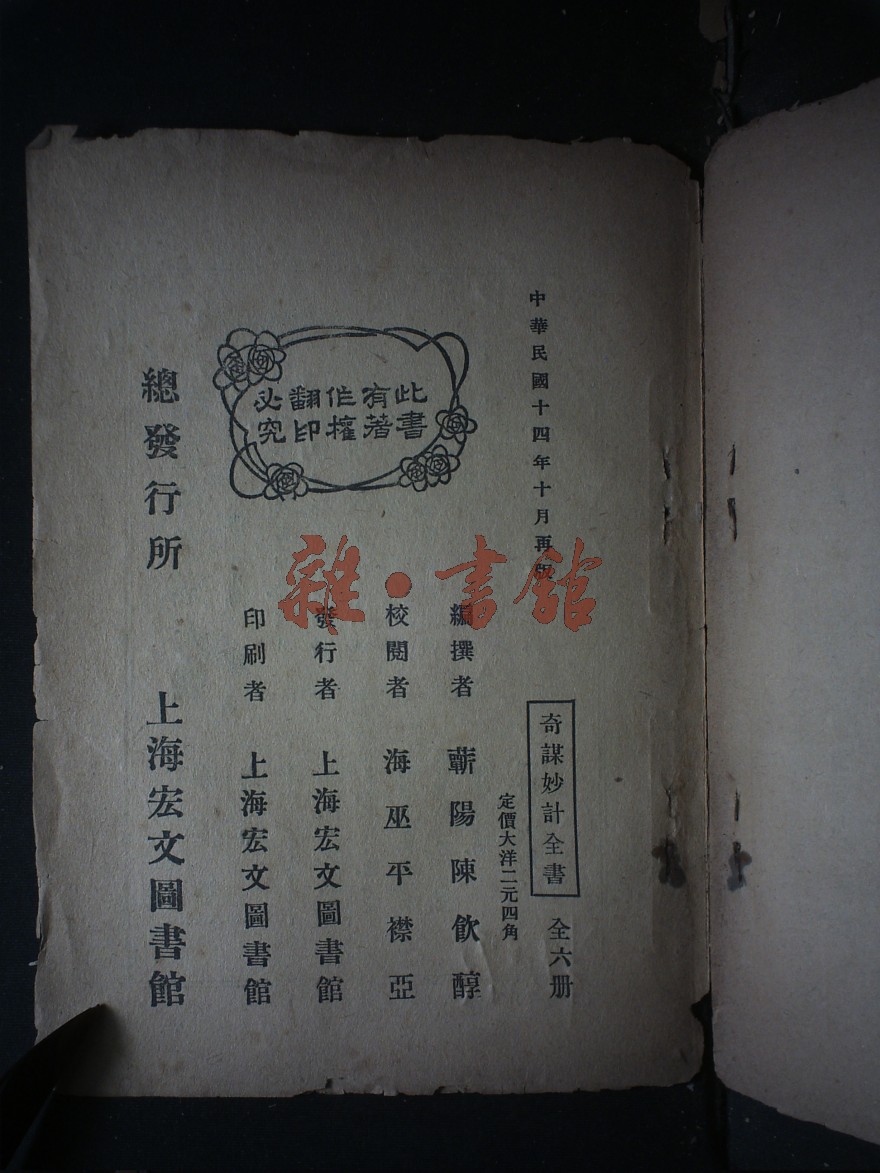 中華民國十四年十月再版
奇謀妙計全書 全六册
定價大洋二元四角
此書
有著
作權
翻印
必究
編撰者 蘄陽陳飲醇
校閱者 海巫平襟亞
發行者 上海宏文圖書館
印刷者 上海宏文圖書館
總發行所 上海宏文圖書館
雜·書館